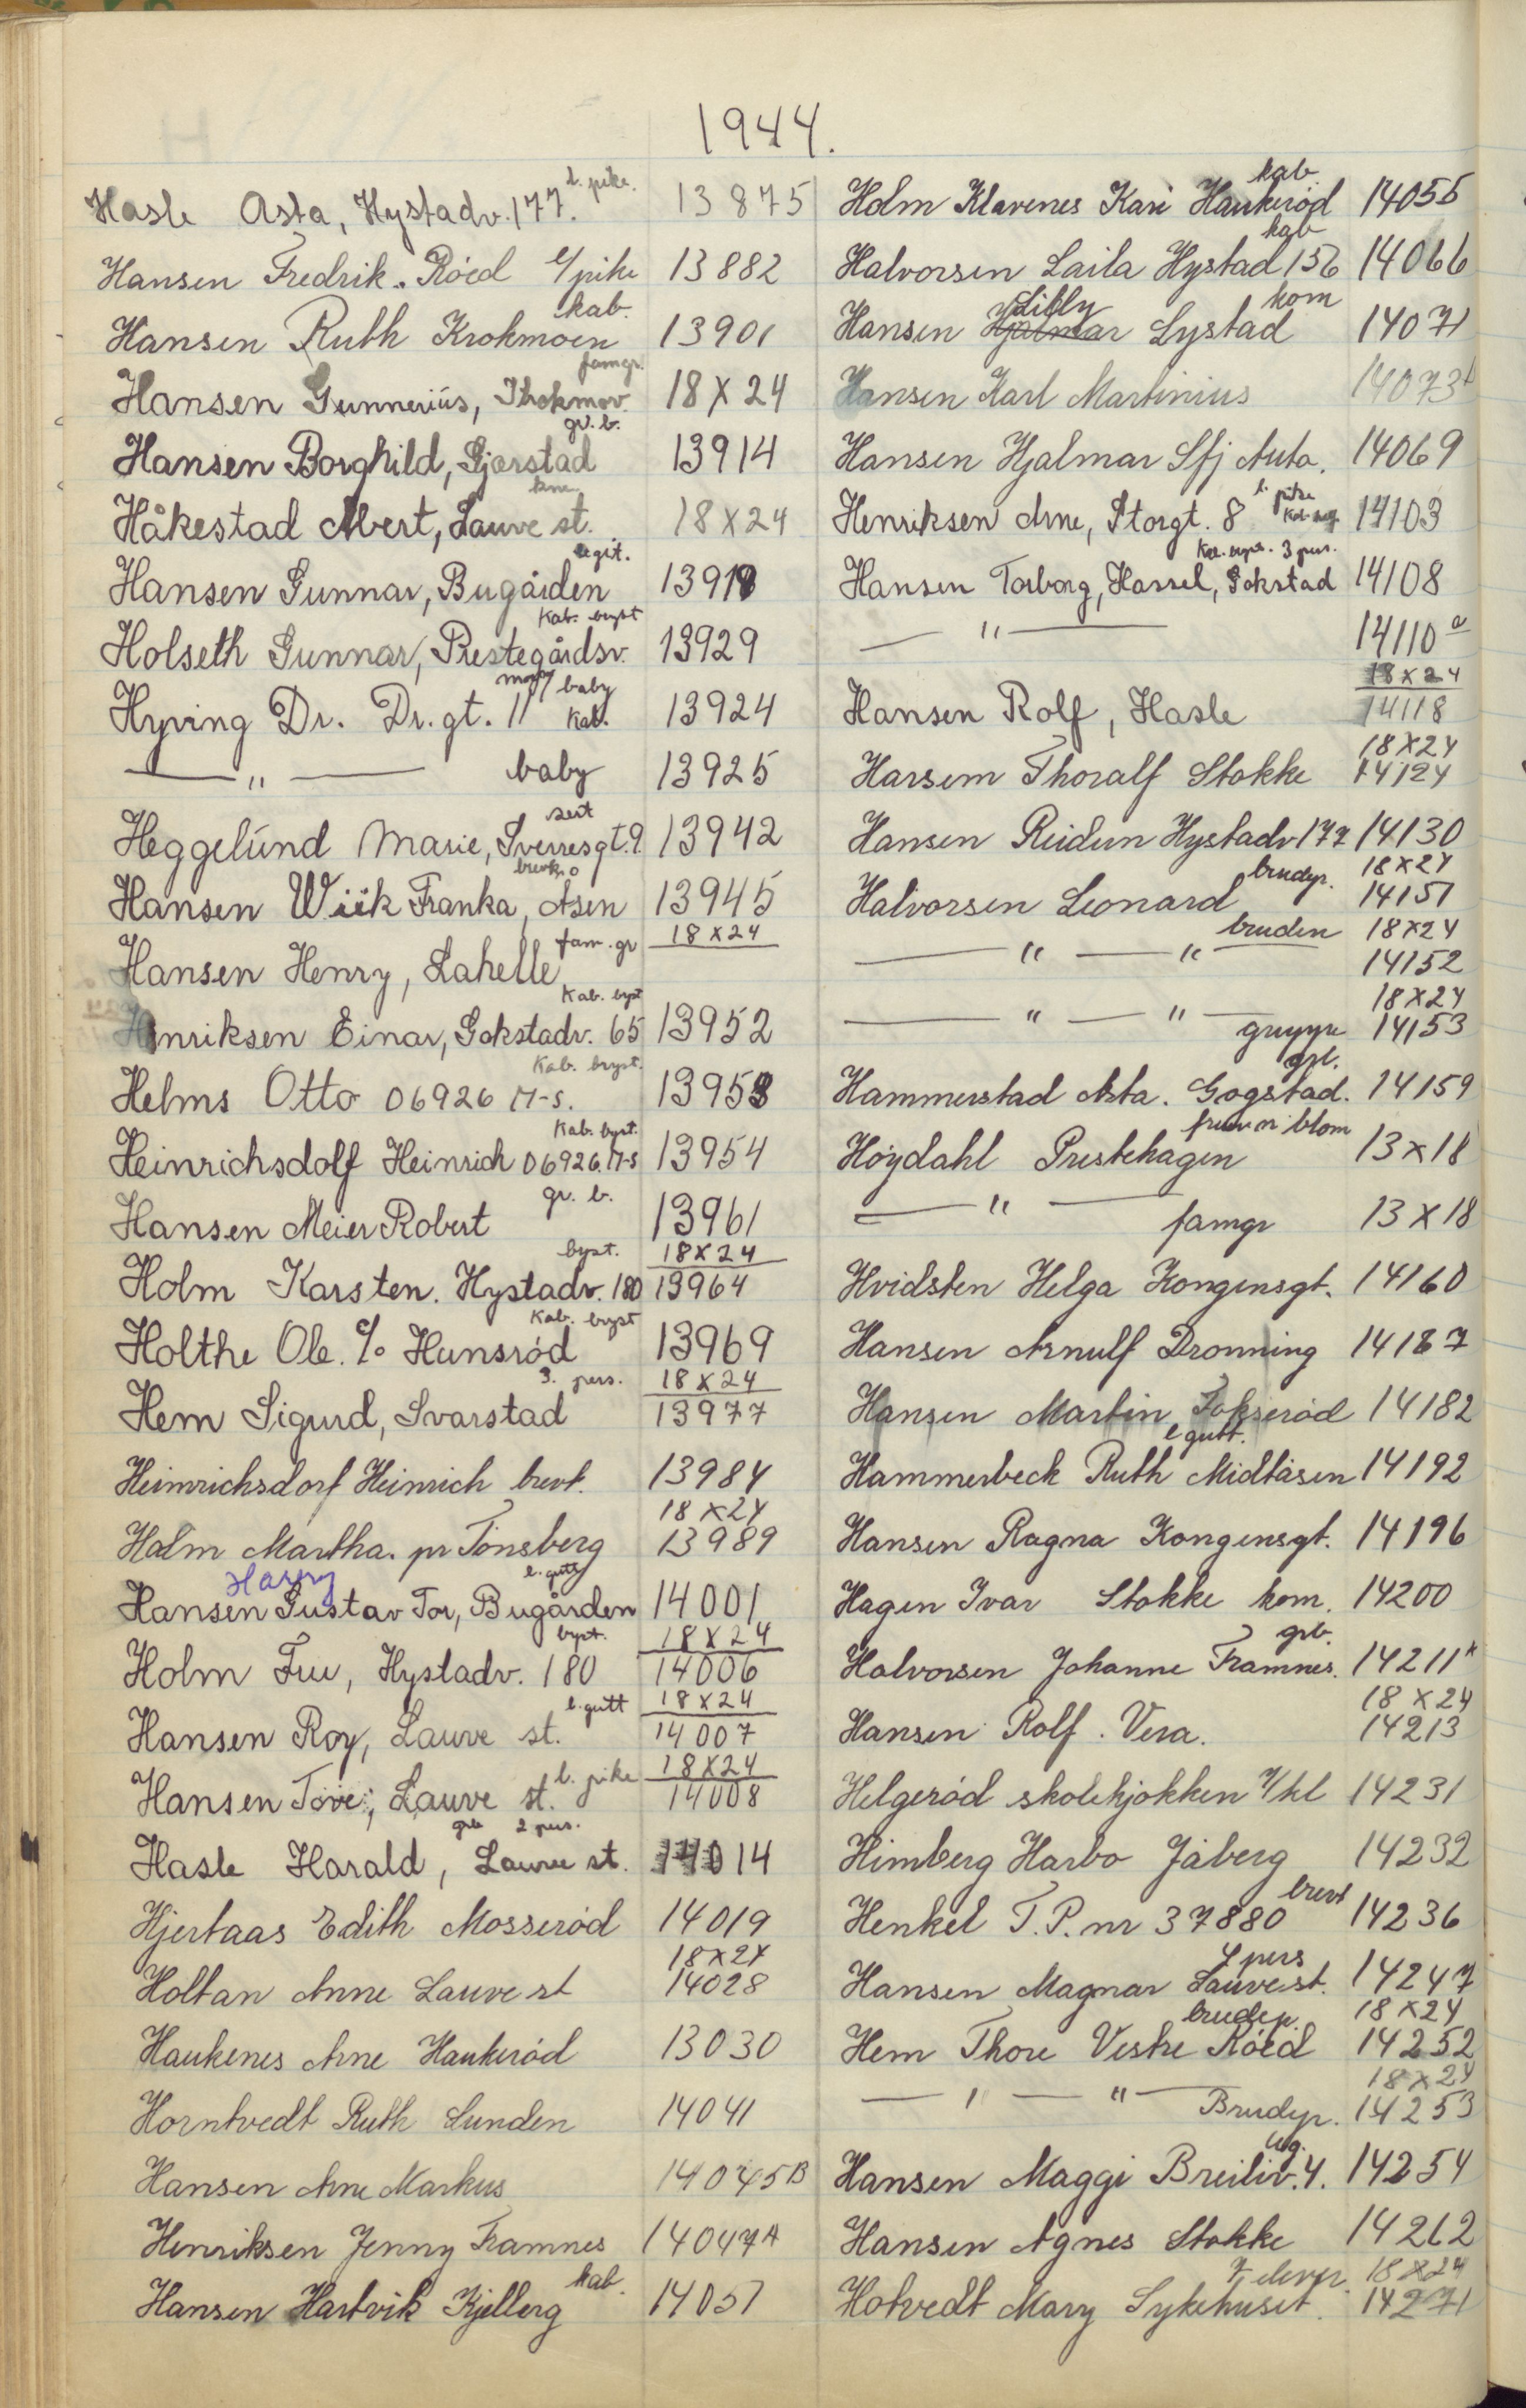 1944.
Hasle Asta, Hystadv. 177. l. pike. 13875
Hansen Fredrik. Röed l/pike 13882
Hansen Ruth Krokmoen kab. 13901
Hansen Gunnerius, famgr. 18 X 24
Hansen Borghild, Gjerstad gr. b. 13914
Håkestad Albert, Lauve st. 18 X 24
Hansen Gunnar, Bugården legit. 13919
Holseth Gunnar, Prestegårdsv. Kab. bryst 13929
Hyving Dr. Dr. gt. 11 baby Kab. 13924
— " — baby 13925
Heggelund Marie, Sverresgt. 9 13942
Hansen Wiik Franka, Åsen 13945
Hansen Henry, Lahelle fam. gr 18 X 24
Henriksen Einar, Gokstadv. 65 Kab. byst 13952
Helms Otto 06926 M-S. Kab. bryst. 13953
Heinrichsdolf Heinrich 06926. M-S Kab. byst. 13954
Hansen Meier Robert gr. b. 13961
Holm Karsten. Hystadv. 180 byst. 18 X 24 13964
Holthe Ole. c/o Hunsród Kab. bryst 13969
Hem Sigurd, Svarstad 3. pers. 18 X 24 13977
Heimrichsdorf Heinrich brevk. 13984
Holm Martha. pr Tönsberg 18 X 24 13989
Hansen Harry Gustav Tor, Bugården l. gutt 14001
Holm Fru, Hystadv. 180 byst. 18 X 24 14006
Hansen Roy, Lauve st. l. gutt 18 X 24 14007
Hansen Tove, Lauve st. l. pike 18 X 24 14008
Hasle Harald, Lauve st. grb 2 pers. 14014
Hjertaas Edith Mosseród 14019
Holtan Anne Lauve st 18 X 24 14028
Haukenes Arne Haukeród 13030
Horntvedt Ruth Lunden 14041
Hansen Arne Markus 14045B
Henriksen Jenny Framnes 14047A
Hansen Hartvik Kjellerg kab. 14051
Holm Klavenes Kari Haukeröd kab. 14055
Halvorsen Laila Hystad 156 kab 14066
Hansen Hjalmar Lilly Lystad kom 14071
Hansen Karl Martinius 14073
Hansen Hjalmar Sfj Auto. 14069
Henriksen Arne, Storgt. 8 l. pike 14103
Hansen Torborg, Hassel, Gokstad 3 pers. 14108
— " — 14110a
Hansen Rolf, Hasle 18 X 24 14118
Harsem Thoralf Stokke 18 X 24 14124
Hansen Reidun Hystadv 177 14130
Halvorsen Leonard brudep. 18 X 24 14151
— " — " bruden 18 X 24 14152
— " — " — gruppe 18 X 24 14153
Hammerstad Asta. Gogstad. grb. 14159
Höydahl Prestehagen fruen m blom 13 X 18
— " — famgr 13 X 18
Hvidsten Helga Kongensgt. 14160
Hansen Arnulf Dronning 14167
Hansen Martin Fokseröd 14182
Hammerbeck Ruth Midtåsen l gutt. 14192
Hansen Ragna Kongensgt. 14196
Hagen Ivar Stokke kom. 14200
Halvorsen Johanne Framnes. grb. 14211k
Hansen Rolf. Vera. 18 X 24 14213
Helgeród skolekjökken 7/kl 14231
Himberg Harbo Jåberg 14232
Henkel T. P. nr 37880 brevk 14236
Hansen Magnar Lauve st. 4 pers 14247
Hem Thore Vestre Röed brudep. 18 X 24 14252
— " — " — Brudep. 18 X 24 14253
Hansen Maggi Breiliv. 4. leg. 14254
Hansen Agnes Stokke 14262
Hotvedt Mary Sykehuset. 18 X 24 14271